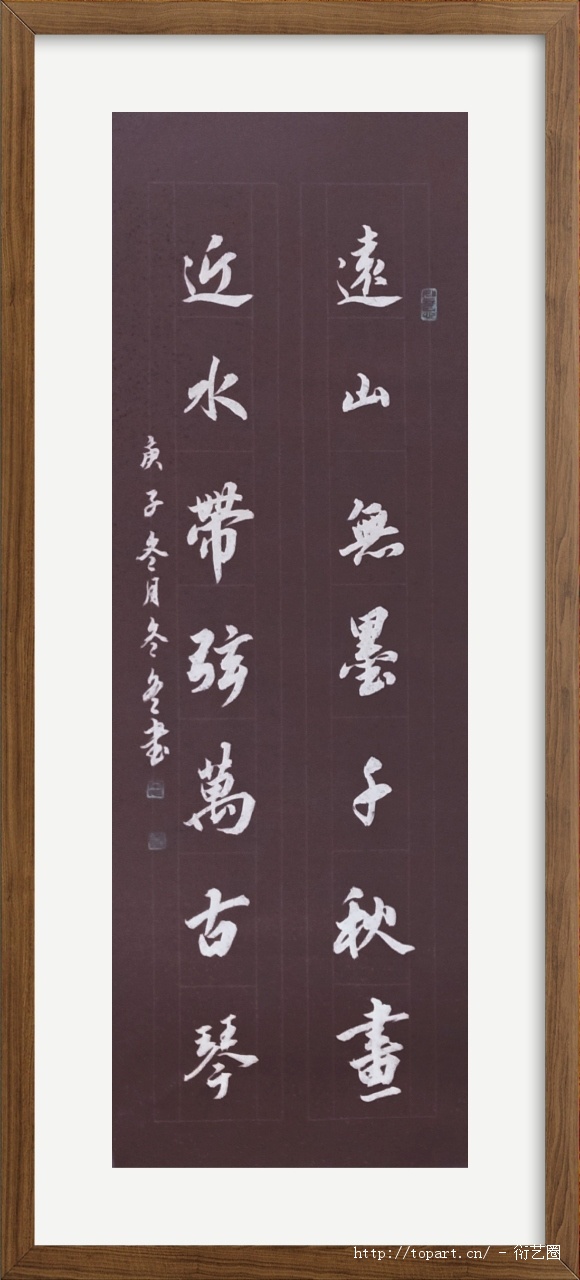 遠山無墨千秋畫
近水帶弦萬古琴
庚子冬月冬冬書
http://topart.cn/ - 衍艺圈